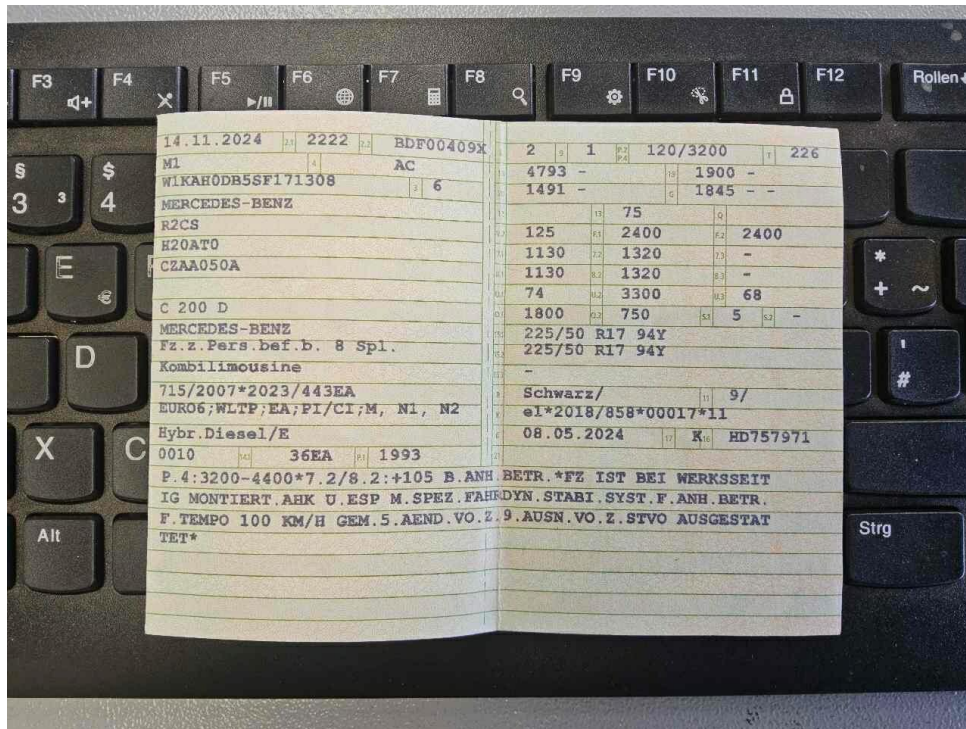 F3 F4 F5 F6 F7 F8 F9 F10 F11 F12 Rollen
14.11.2024 2.1 2222 2.2 BDF00409X
M1 4 AC
W1KAH0DB5SF171308 3 6
MERCEDES-BENZ
R2CS
H20AT0
CZAA050A
C 200 D
MERCEDES-BENZ
Fz.z.Pers.bef.b. 8 Spl.
Kombilimousine
715/2007*2023/443EA
EURO6;WLTP;EA;PI/CI;M, N1, N2
Hybr.Diesel/E
0010 14.1 36EA P.1 1993
2 9 1 P.2 P.4 120/3200 T 226
4793 - 19 1900 -
1491 - G 1845 - -
13 75 Q
125 F.1 2400 F.2 2400
1130 7.2 1320 7.3 -
1130 8.2 1320 8.3 -
74 U.2 3300 U.3 68
1800 O.2 750 S.1 5 S.2 -
225/50 R17 94Y
225/50 R17 94Y
-
Schwarz/ 11 9/
e1*2018/858*00017*11
08.05.2024 17 K 16 HD757971
21
P.4:3200-4400*7.2/8.2:+105 B.ANH.BETR.*FZ IST BEI WERKSSEIT
IG MONTIERT.AHK U.ESP M.SPEZ.FAHRDYN.STABI.SYST.F.ANH.BETR.
F.TEMPO 100 KM/H GEM.5.AEND.VO.Z.9.AUSN.VO.Z.STVO AUSGESTAT
TET*
§ 3 3
$ 4
E €
D
X
C
Alt
* + ~
' #
Strg